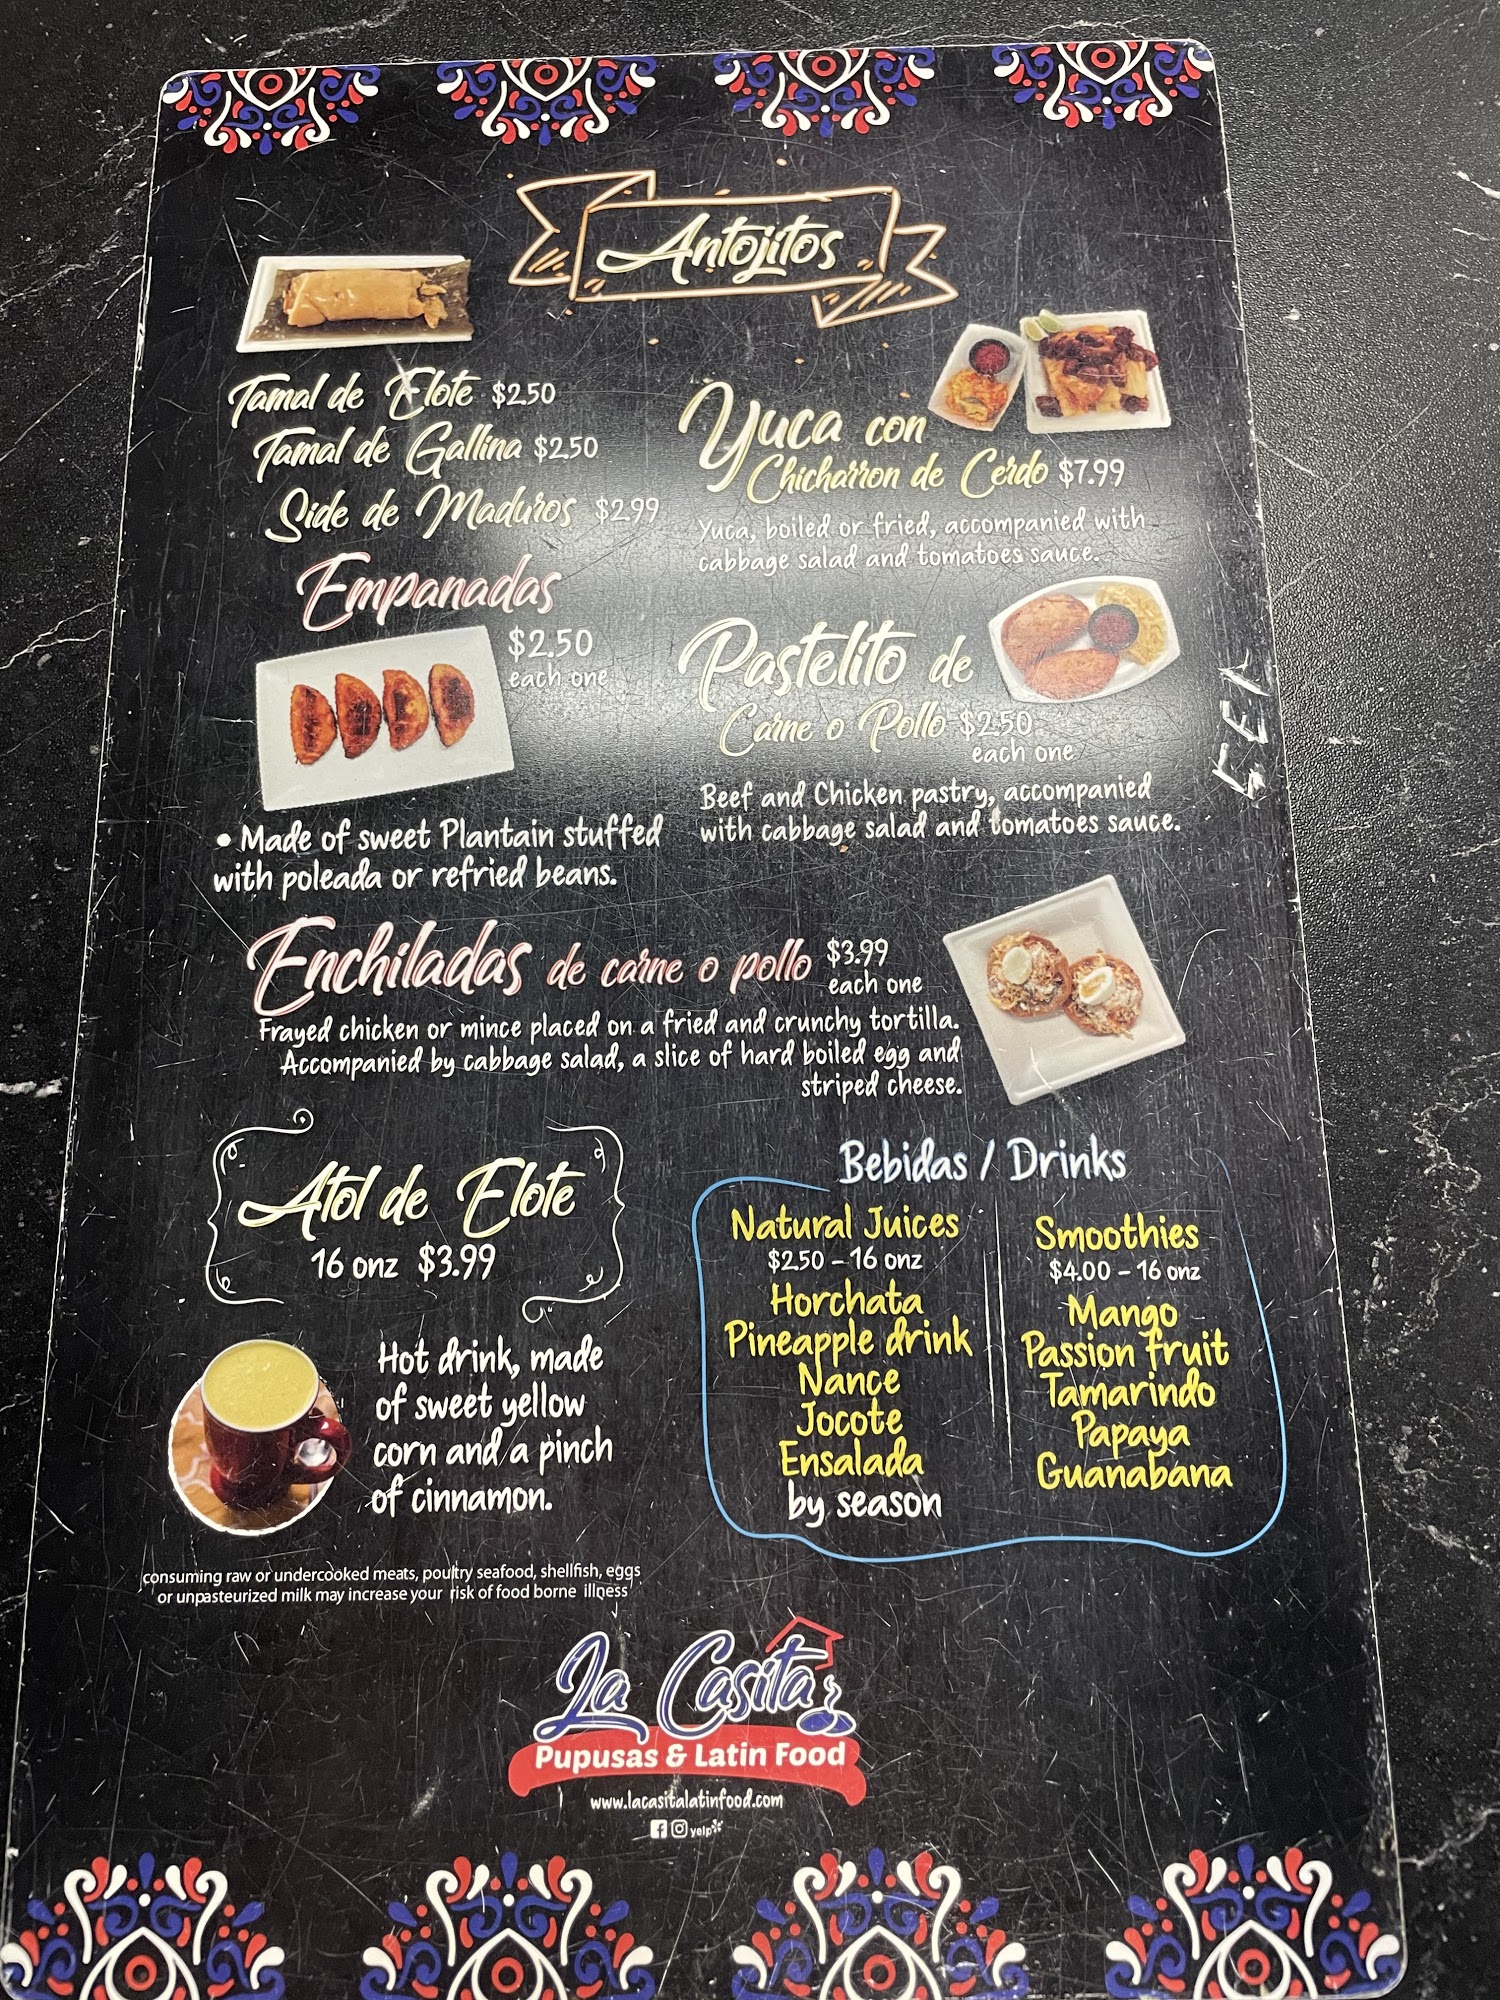 Antojitos
Tamal de Elote $2.50
Tamal de Gallina $2.50
Side de Maduros $2.99
Empanadas
$2.50
each one
• Made of sweet Plantain stuffed
with poleada or refried beans.
Yuca con
Chicharron de Cerdo $7.99
Yuca, boiled or fried, accompanied with
cabbage salad and tomatoes sauce.
Pastelito de
Carne o Pollo $2.50
each one
Beef and Chicken pastry, accompanied
with cabbage salad and tomatoes sauce.
Enchiladas de carne o pollo $3.99
each one
Frayed chicken or mince placed on a fried and crunchy tortilla.
Accompanied by cabbage salad, a slice of hard boiled egg and
striped cheese.
Atol de Elote
16 onz $3.99
Hot drink, made
of sweet yellow
corn and a pinch
of cinnamon.
Bebidas / Drinks
Natural Juices
$2.50 - 16 onz
Horchata
Pineapple drink
Nance
Jocote
Ensalada
by season
Smoothies
$4.00 - 16 onz
Mango
Passion fruit
Tamarindo
Papaya
Guanabana
consuming raw or undercooked meats, poultry seafood, shellfish, eggs
or unpasteurized milk may increase your risk of food borne illness
La Casita
Pupusas & Latin Food
www.lacasitalatinfood.com
yelp